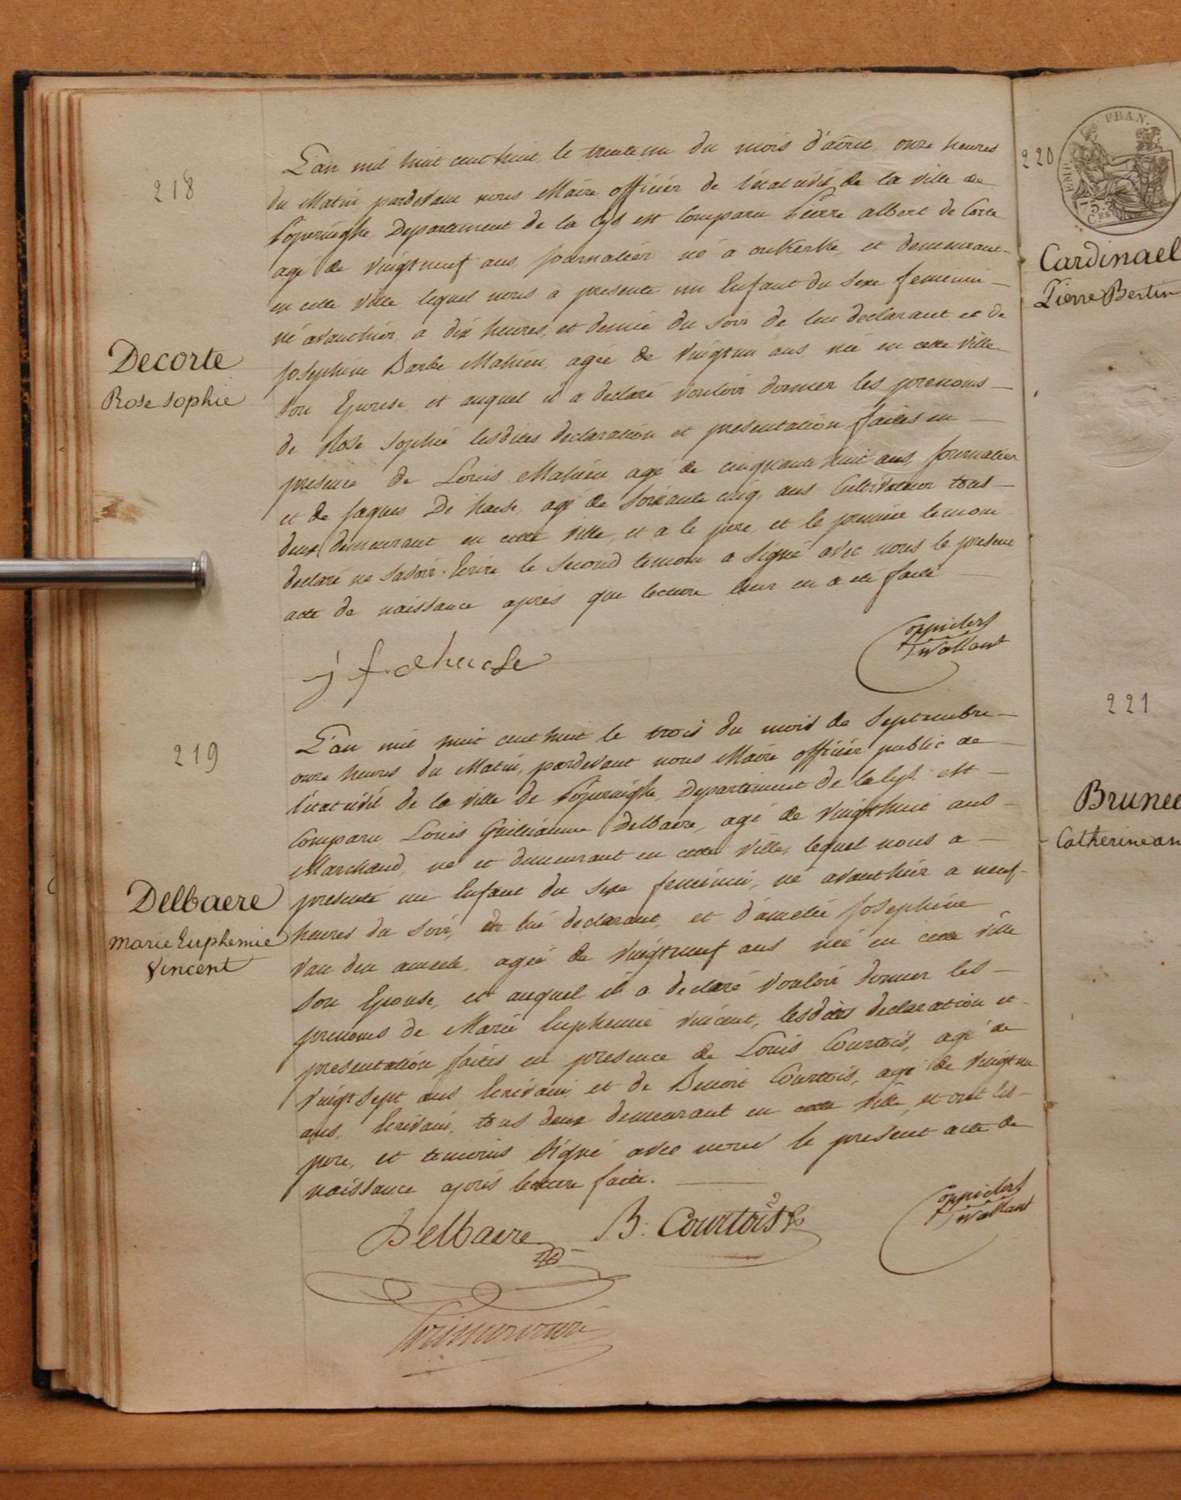 218
Decorte
Rose Sophie
L'an mil huit cent huit le trente un du mois d'août onze heures
du Matin pardevant nous Maire officier de l'etat civil de la ville de
Poperinghe, Departement de la Lys est Comparu Pierre albert de Corte
agé de vingtneuf ans Journalier né à et demeurant
en cette ville lequel nous a presenté un Enfant du Sexe feminin
né avanthier à dix heures et demie du Soir de lui declarant et de
Josephine Barbe Mahieu, agée de vingtun ans née en cette ville
Son Epouse, et auquel il a declaré vouloir donner les prenoms
de Rose Sophie lesdites declaration et presentation faites en
presence de Louis Mahieu agé de cinquante huit ans, Journalier
et de Jaques De haese, agé de Soixante cinq ans Cultivateur tous
deux demeurant en cette ville, et a le pere et le premier temoin
declaré ne Savoir Ecrire le Second temoin a Signé avec nous le present
acte de naissance après que lecture leur en a été faite
j f dehaese
219
Delbaere
Marie Euphemie
Vincent
L'an mil huit cent huit le trois du mois de Septembre
onze heures du Matin, pardevant nous Maire officier public de
l'etat civil de la ville de Poperinghe, Departement de la Lys est
Comparu Louis Guillaume Delbaere, agé de vingthuit ans
Marchand, né et demeurant en cette ville, lequel nous a
presenté un Enfant du Sexe feminin, né avanthier à neuf
heures du Soir, de lui declarant, et d'amelie Josephine
van den ameele, agée de vingtneuf ans née en cette ville
Son Epouse, et auquel il a declaré vouloir donner les
prenoms de Marie Euphemie vincent, lesdites declaration et
presentation faites en presence de Louis Courtois, agé de
vingt sept ans Ecrivain et de Benoit Courtois, agé de vingtun
ans, Ecrivain, tous deux demeurant en cette ville, et ont les
pere, et temoins Signé avec nous le present acte de
naissance après lecture faite.
Delbaere B. Courtois
220
EMP. FRAN.
Cardinael
Pierre Bertin
221
Brunee
Catherine an